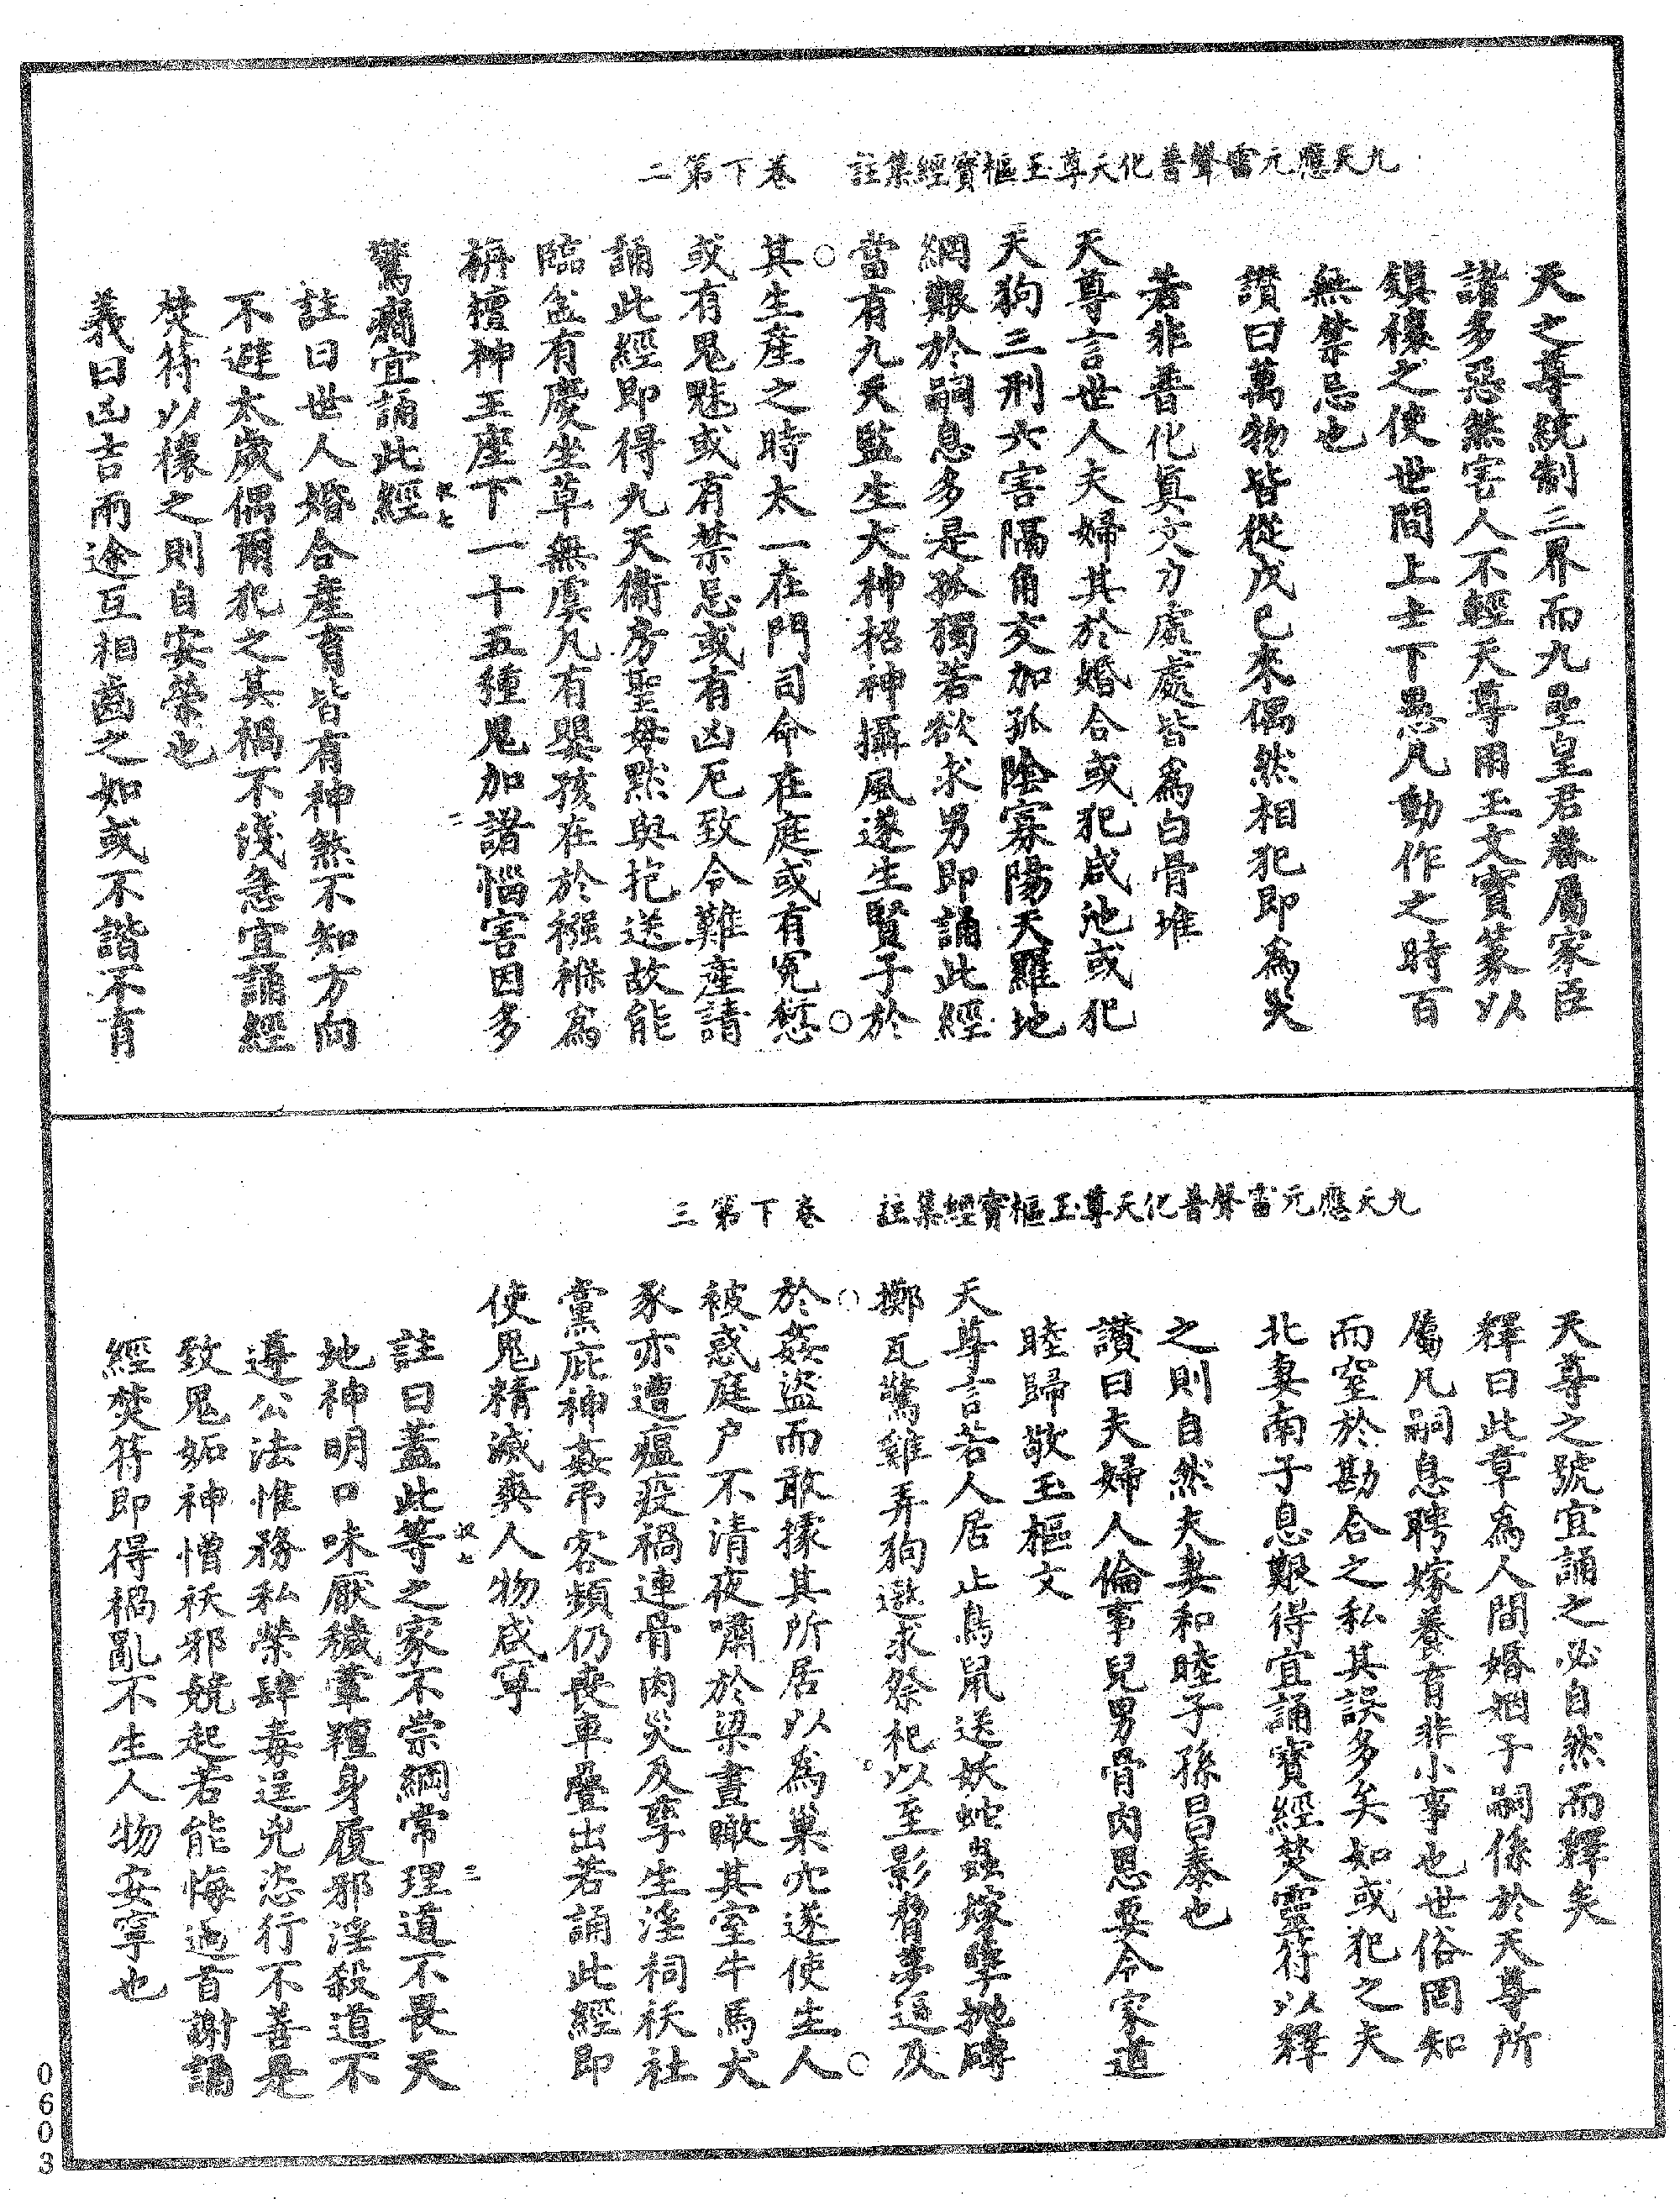 九天應元雷聲普化天尊玉樞寶經集註　卷下第二
天之尊統制三界而九聖皇君眷屬家臣
諸多惡煞害人不輕天尊用玉文寶篆以
鎮禳之使世間上士下愚凡動作之時百
無禁忌也
讚曰萬物皆從戊己來偶然相犯即為災
若非普化真文力處處皆為白骨堆
天尊言世人夫婦其於婚合或犯咸池或犯
天狗三刑六害隔角交加孤陰寡陽天羅地
網艱於嗣息多是孤獨若欲求男即誦此經
當有九天監生大神招神攝風遂生賢子於
○　○
其生産之時太一在門司命在庭或有冤愆
或有鬼魅或有禁忌或有凶厄致令難産請
誦此經即得九天衛房聖母默與抱送故能
臨盆有慶坐草無虞凡有嬰孩在於襁褓為
栴檀神王座下一十五種鬼加諸惱害因多
二
驚癇宜誦此經
註曰世人婚合産育皆有神煞不知方向
不避太歲偶爾犯之其禍不淺急宜誦經
焚符以禳之則自安榮也
義曰凶吉而途互相啚之如或不諧不育
九天應元雷聲普化天尊玉樞寶經集註　卷下第三
天尊之號宜誦之必自然而釋矣
釋曰此章為人間婚姻于嗣係於天尊所
屬凡嗣息聘嫁養育非小事也世俗罔知
而窒於勘合之私其誤多矣如或犯之夫
北妻南子息艱得宜誦寶經焚靈符以釋
之則自然夫妻和睦子孫昌泰也
讚曰夫婦人倫事兒男骨肉恩要令家道
睦歸敬玉樞文
天尊言若人居止鳥鼠送妖蛇蟲嫁孽抛磚
擲瓦驚雞弄狗邀求祭祀以至影脅夢逼及
○　○
於姦盜而敢據其所居以為巢穴遂使生人
被惑庭戶不清夜嘯於梁晝瞰其室牛馬犬
豕亦遭瘟疫禍連骨肉災及孳生淫祠祅社
黨庇神姦吊客頻仍喪車疊出若誦此經即
使鬼精滅爽人物咸寧
三
註曰蓋此等之家不崇綱常理道不畏天
地神明口味厭穢葷羶身履邪淫殺道不
遵公法惟務私榮肆毒逞兇恣行不善是
致鬼妬神憎祅邪兢起若能悔過首謝誦
經焚符即得禍亂不生人物安寧也
0603